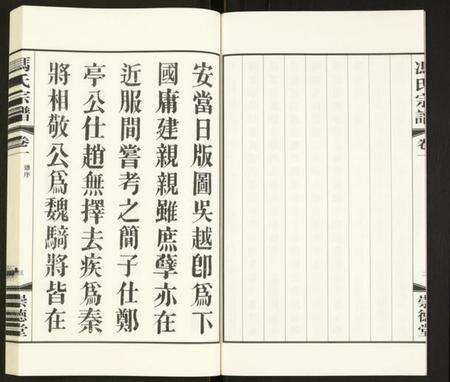 安當日版圖吳越卽爲下
國庸建親親雖庶孽亦在
近服間嘗考之簡子仕鄭
亭公仕趙無擇去疾爲秦
將相敬公爲魏騎將皆在
馮氏宗譜
卷一
譜序
崇德堂
馮氏宗譜
卷一
崇德堂